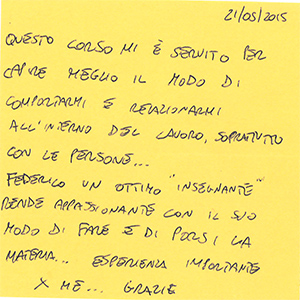 21/05/2015
QUESTO CORSO MI È SERVITO PER
CAPIRE MEGLIO IL MODO DI
COMPORTARMI E RELAZIONARMI
ALL'INTERNO DEL LAVORO, SOPRATTUTTO
CON LE PERSONE...
FEDERICO UN OTTIMO "INSEGNANTE"
RENDE APPASSIONANTE CON IL SUO
MODO DI FARE E DI PORSI LA
MATERIA... ESPERIENZA IMPORTANTE
X ME... GRAZIE